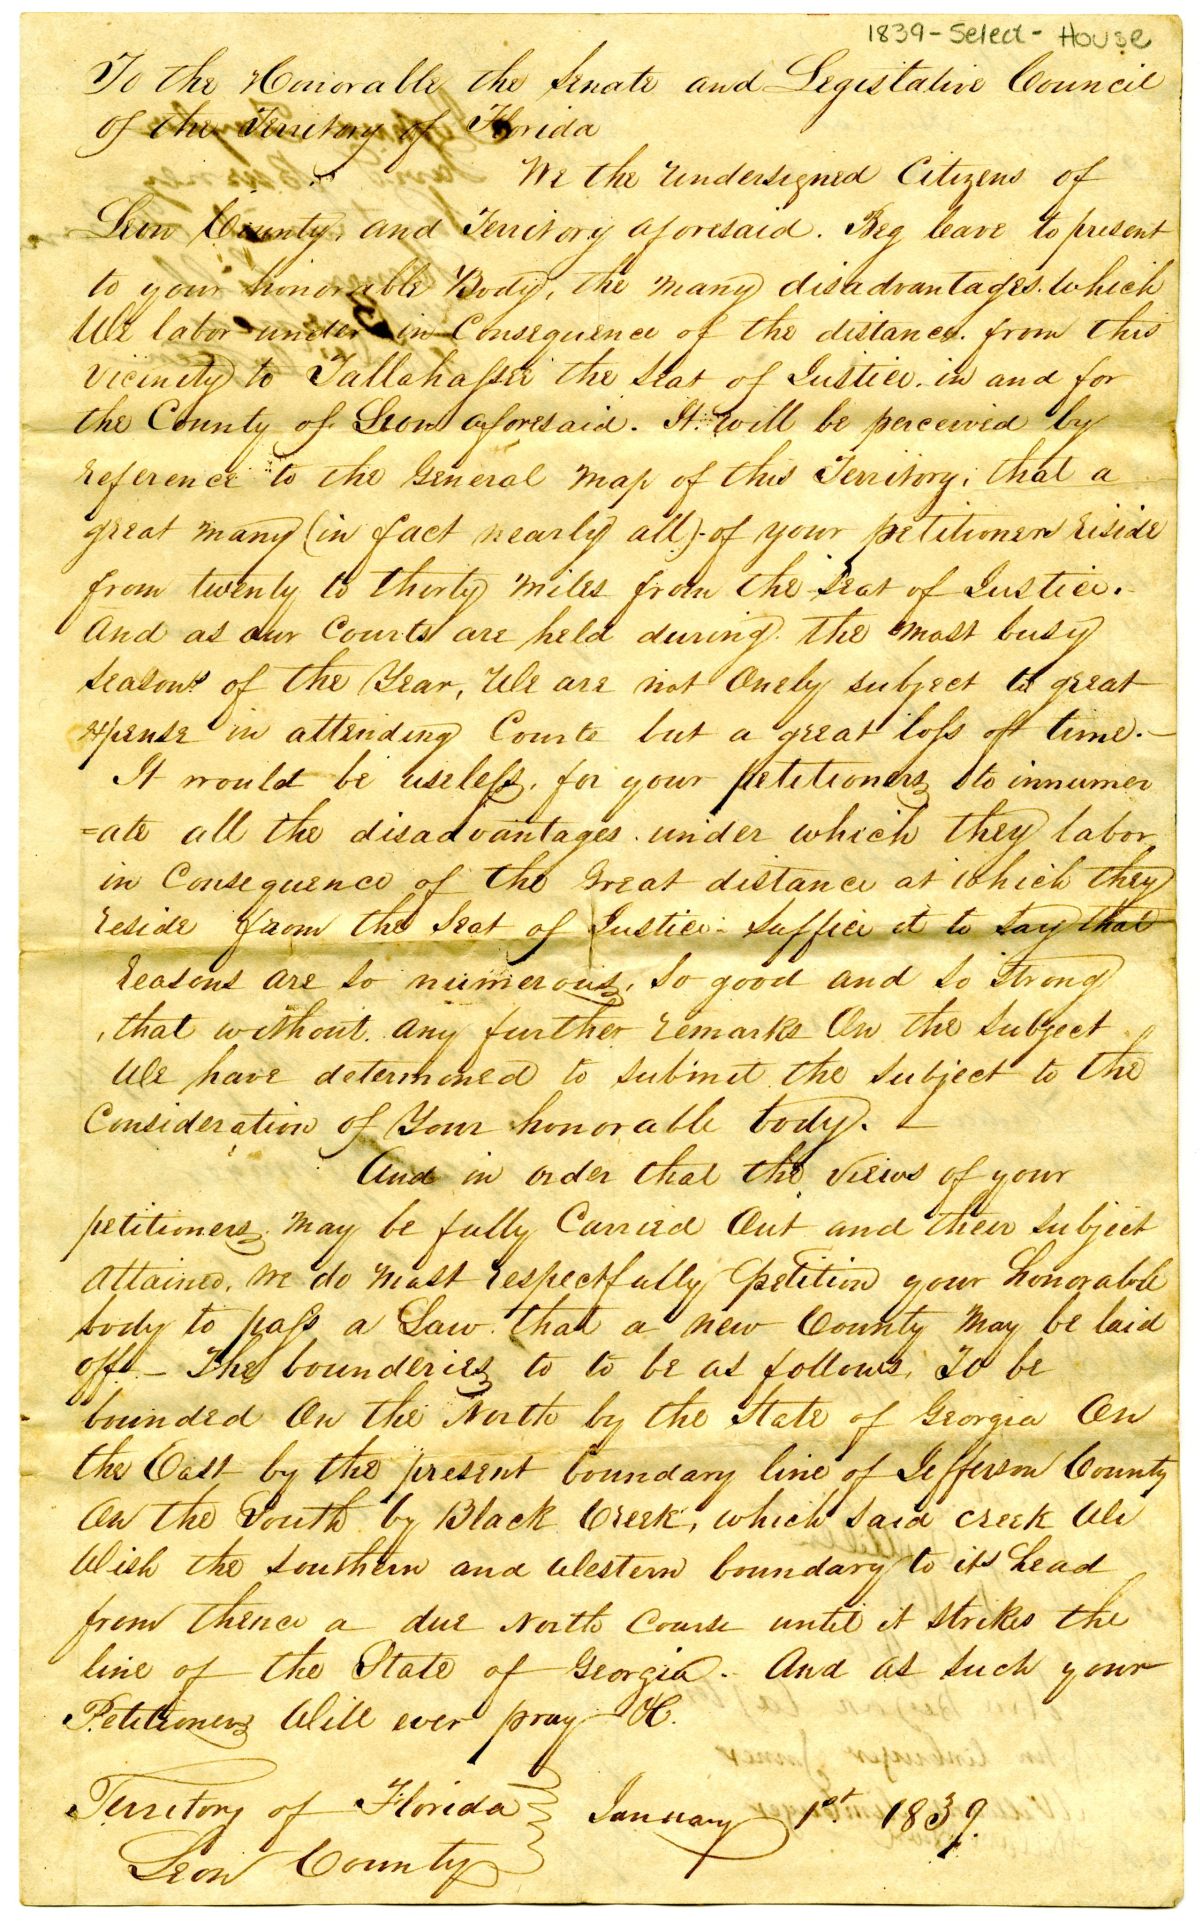 1839-Select-House
To the Honorable the Senate and Legislative Council
of the Territory of Florida
We the undersigned Citizens of
Leon County, and Territory aforesaid. Beg leave to present
to your honorable Body, the many disadvantages which
We labor under in Consequence of the distance from this
vicinity to Tallahassee the seat of Justice in and for
the County of Leon aforesaid. It will be perceived by
reference to the General map of this Territory, that a
great many (in fact nearly all) of your petitioners reside
from twenty to thirty miles from the seat of Justice.
And as our Courts are held during the most busy
seasons of the Year, We are not Onely subject to great
expense in attending Courts but a great loss of time.
It would be useless, for your petitioners to innumer
=ate all the disadvantages under which they labor
in Consequence of the Great distance at which they
reside from the Seat of Justice. suffice it to say that
reasons are so numerous, so good and so strong
that without any further remarks On the subject
We have determoned to submit the subject to the
Consideration of Your honorable body. -
And in order that the views of your
petitioners may be fully Carried Out and their subject
Attained, We do most respectfully petition your honorable
body to pass a Law that a new County may be laid
off - The bounderies to to be as follows, To be
bounded On the North by the State of Georgia On
the East by the present boundary line of Jefferson County
On the South by Black Creek, which said creek We
Wish the southern and Western boundary to its head
from thence a due North Course until it strikes the
line of the State of Georgia. And as such your
Petitioners Will ever pray &c.
Territory of Florida
Leon County
January 1st. 1839.